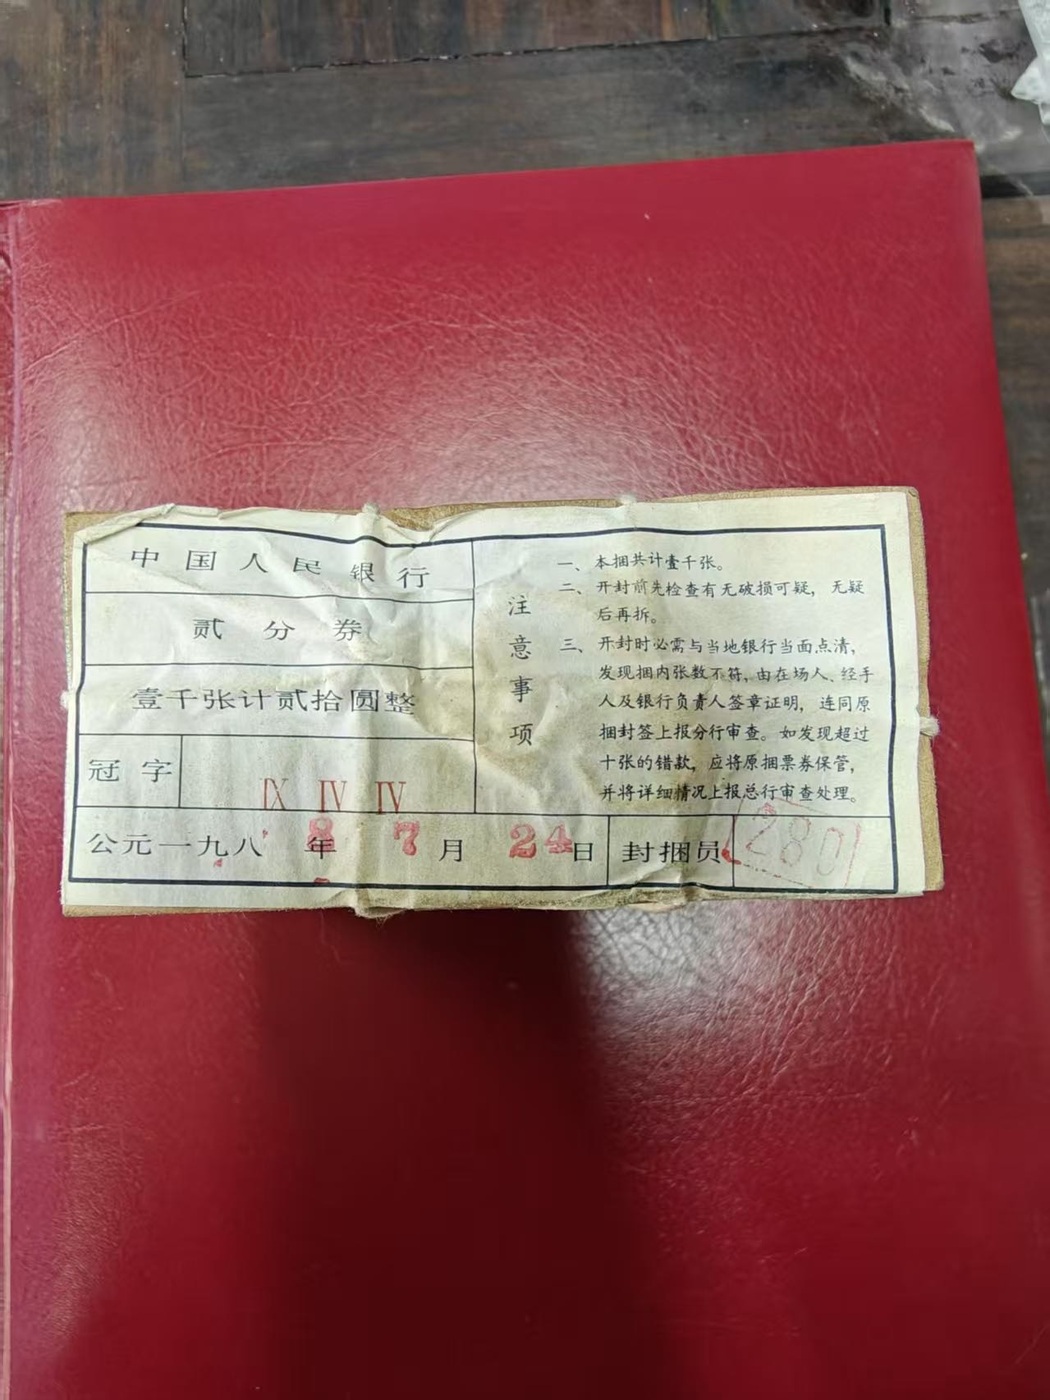 中国人民银行
贰分券
壹千张计贰拾圆整
冠字 IX IV IV
公元一九八8年7月24日
封捆员 280
注意事项
一、本捆共计壹千张。
二、开封前先检查有无破损可疑，无疑
后再拆。
三、开封时必需与当地银行当面点清，
发现捆内张数不符，由在场人、经手
人及银行负责人签章证明，连同原
捆封签上报分行审查。如发现超过
十张的错款，应将原捆票券保管，
并将详细情况上报总行审查处理。